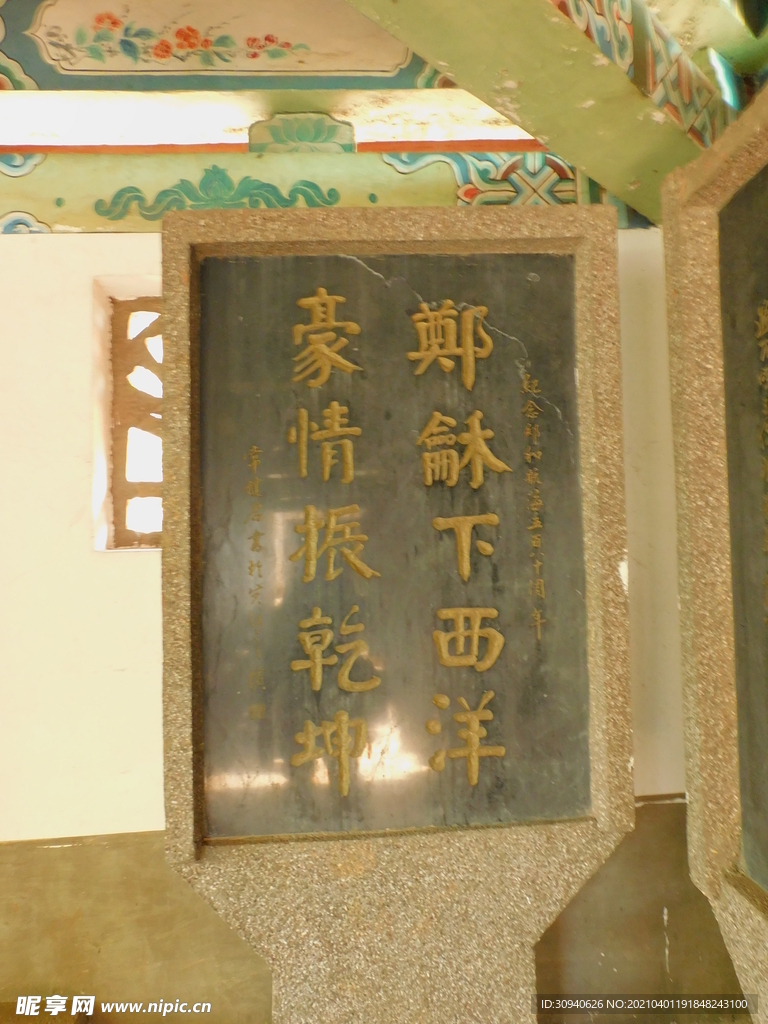 紀念鄭和航海五百八十周年
鄭龢下西洋
豪情振乾坤
昵享网 www.nipic.cn
ID:30940626 NO:20210401191848243100